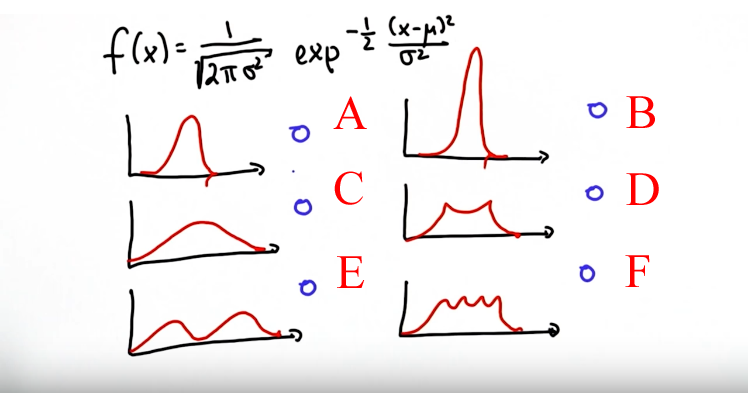 f(x) = 1/√(2πσ²) exp^(-1/2 (x-μ)²/σ²)
A
B
C
D
E
F